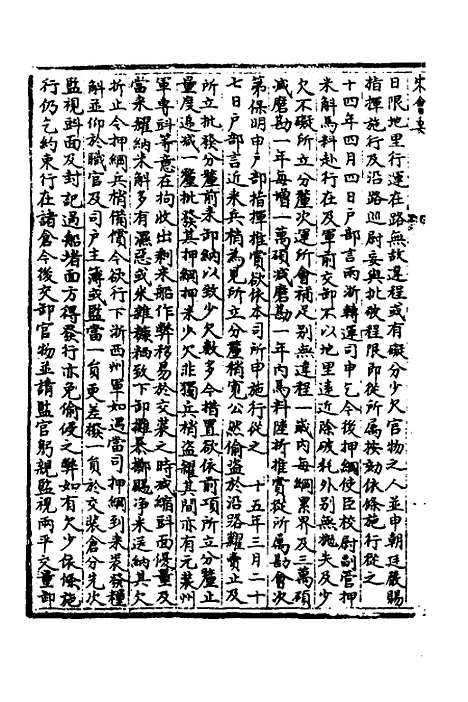 宋會要
日限地里行運在路無故違程或有礙分少欠官物之人並申朝廷嚴賜
指揮施行及沿路巡尉妄與批破程限即從所屬按劾依條施行從之
十四年四月四日户部言兩浙轉運司申乞今後押綱使臣校尉副管押
米斛馬料赴行在及軍前交卸不以地里遠近除破耗外别無拋失及少
欠不礙所立分釐次運所會補足别無違程一歲内每綱累界及三萬碩
減磨勘一年每增一萬碩減磨勘一年内馬料陸折推賞從所屬勘會次
第保明申户部指揮推賞欲依本司所申施行從之　十五年三月二十
七日户部言近來兵梢為見所立分釐稍寬公然偷盜於沿路糶賣正及
所立批發分釐前來卸納以致少欠數多今措置欲依前項所立分釐止
量度追減一釐批發其押綱押米少欠非獨兵梢盜糶其間亦有元裝州
軍專斗等意在拘收出剩米船作弊移易於交裝之時減縮斗面慢量及
當來糴納米斛多有濕惡或米雜糠粞致下卸攤暴擲颺淨米送納其欠
折止令押綱兵梢備償今欲行下浙西州軍如遇當司押綱到來裝發種
斛並仰於職官及司户主簿或監當一員更差撥一員於交裝倉分先次
監視斗面及封記過船堵面方得發行亦免偷侵之弊如有欠少依條施
行仍乞約束行在諸倉今後交卸官物並請監官躬親監視兩平交量卸